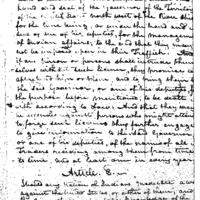 hand and seal of the Governor of the Territory
of the United States north west of the River Ohio
for the time being, or under the hand and
seal of one of his deputies, for the management
of Indian affairs; to the end that they may
not be imposed upon in their Traffic. And
if any person or persons shall intrude them
selves without such licence, they promise to
apprehend him or them, and to bring them to
the said Governor, or one of his deputies, for
the purpose before mentioned, to be dealt
with according to law: And that they may
be secure against persons who might attempt
to forge such licence, they further engage
to give information to the said Governor
or one of his deputies, of the names of all
traders residing among them from time
to time, and at least once in every year.
Article 8.
Should any Nation of Indians meditate a war
against the United States, or either of them, and